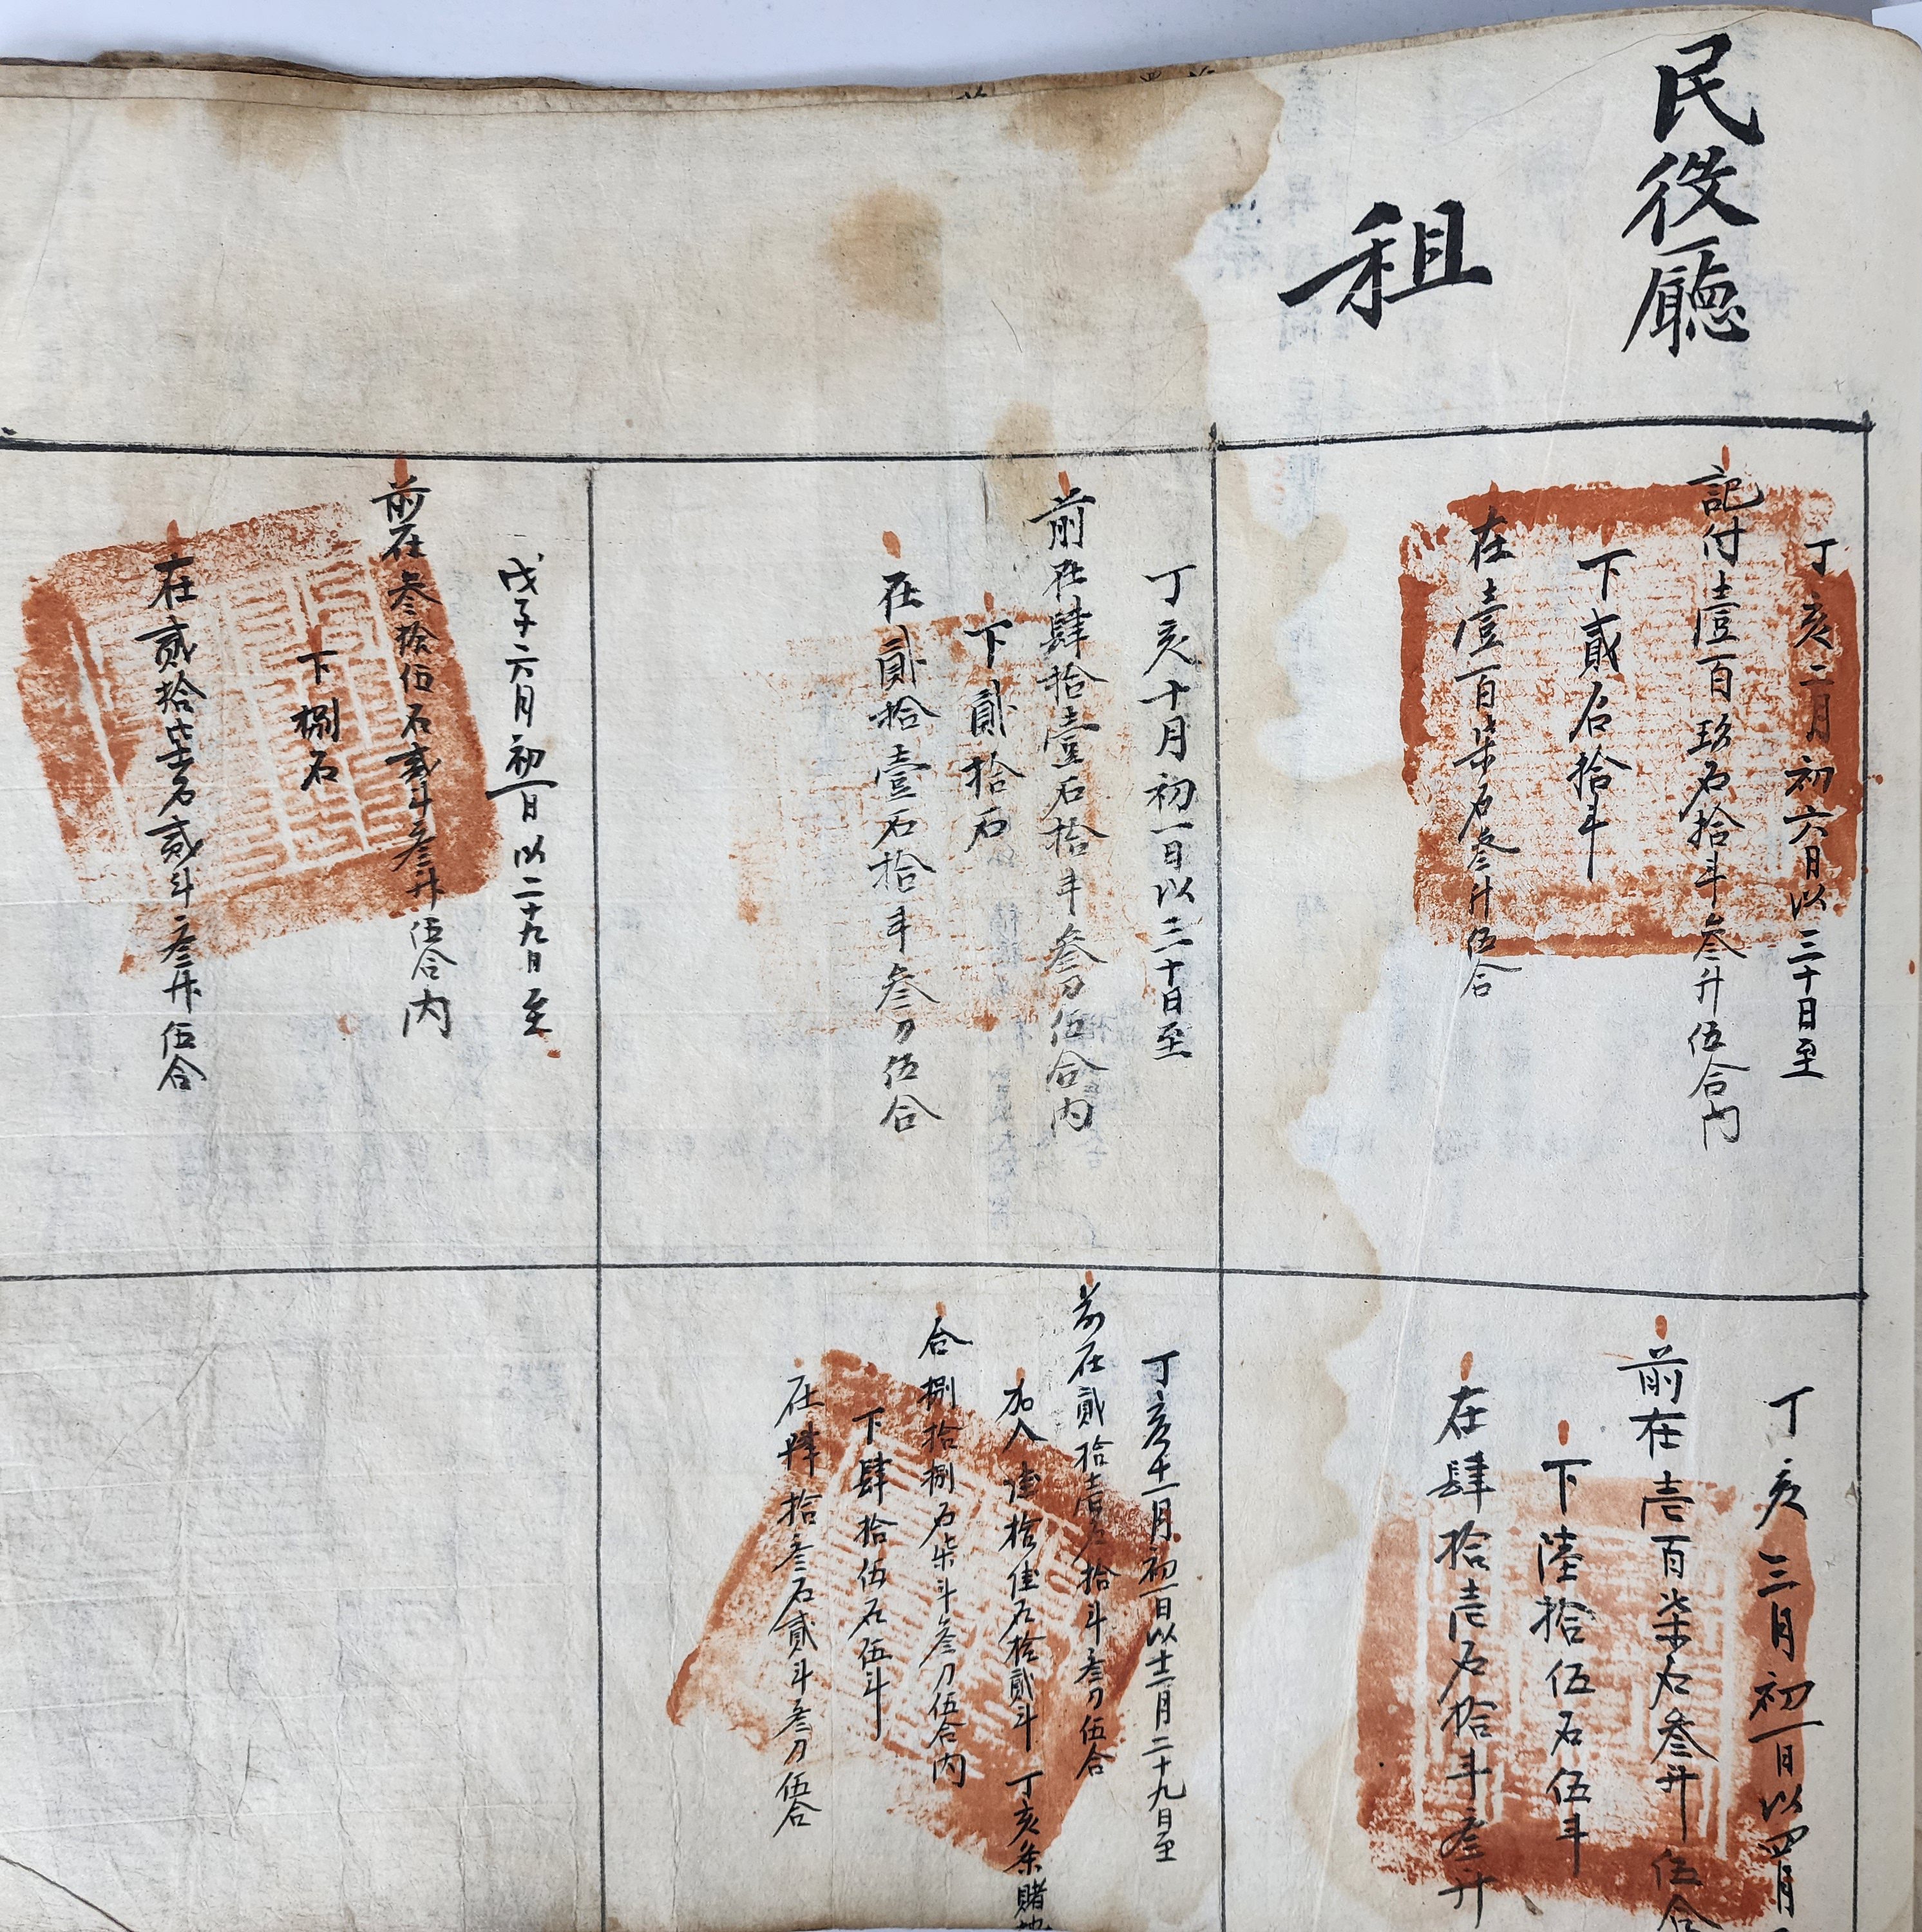 民役廳
租
丁亥二月初六日以三十日至
記付壹百玖石拾斗叄升伍合內
下貳石拾斗
在壹百柒石叄升伍合
丁亥三月初一日以四月
前在壱百柒石叄升伍合
下陸拾伍石伍斗
在肆拾壱石拾斗叄升
丁亥十月初一日以三十日至
前在肆拾壹石拾斗叄刀伍合內
下貳拾石
在貳拾壹石拾斗叄刀伍合
丁亥十一月初一日以十二月二十九日至
前在貳拾壹石拾斗叄刀伍合
加入拾石拾貳斗 丁亥条賭地
合捌拾捌石柒斗叄刀伍合內
下肆拾伍石伍斗
在肆拾叄石貳斗叄刀伍合
戊子六月初一日以二十九日至
前在叄拾伍石貳斗叄升伍合內
下捌石
在貳拾柒石貳斗叄升伍合